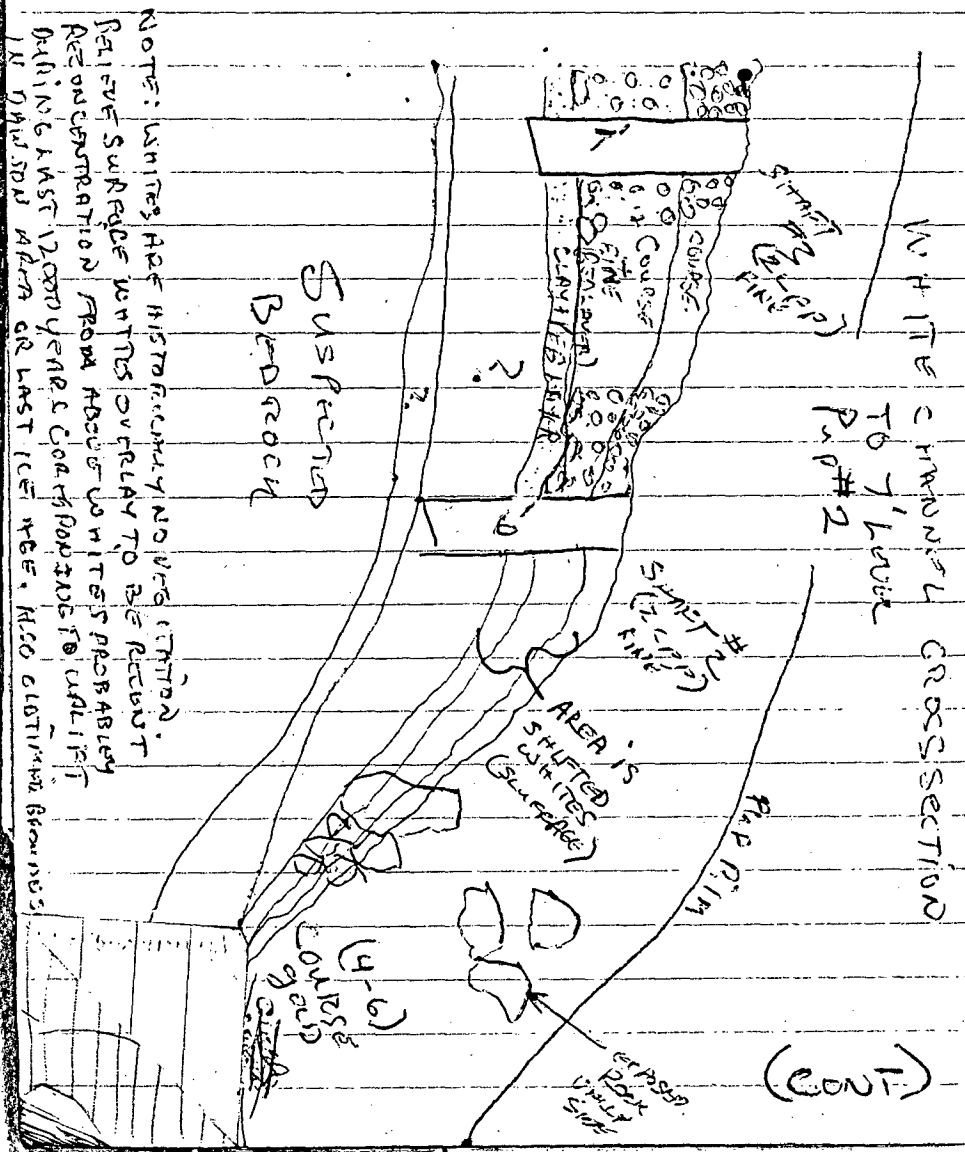 WHITE CHANNEL CROSSECTION
TO 7' LEVEL
PUP #2
(CONT)
SHAFT
#3
(2 CPP)
FINE
7'
COURSE
COURSE
FINE
CLAY
?
SHAFT #2
FINE
AREA IS
SHIFTED
WHITES
(SLUFFAGE)
PUP RIM
EXPOSED
ROCK
(4-6)
COURSE
gOLD
?
SUSPECTED
BEDROCK
NOTE: WHITES ARE HISTORICALLY NO VEGITATION.
BELIEVE SURFACE WHITES OVERLAY TO BE RECENT
RECONCENTRATION FROM ABOVE WHITES PROBABLY
DURING LAST 12000 YEARS CORRSPONDING TO UPLIFT
IN DAWSON AREA OR LAST ICE AGE. ALSO